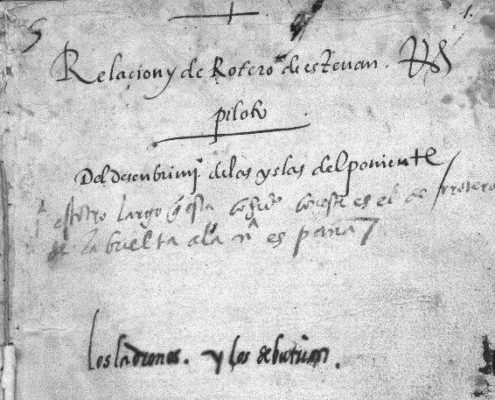 5 1.
Relacion y de Rotero de esteuan.
piloto
Del descubrimj de las yslas del poniente
largo q esta con este es el derrotero
de la buelta a la nª españa
los ladrones. y los de butuan.